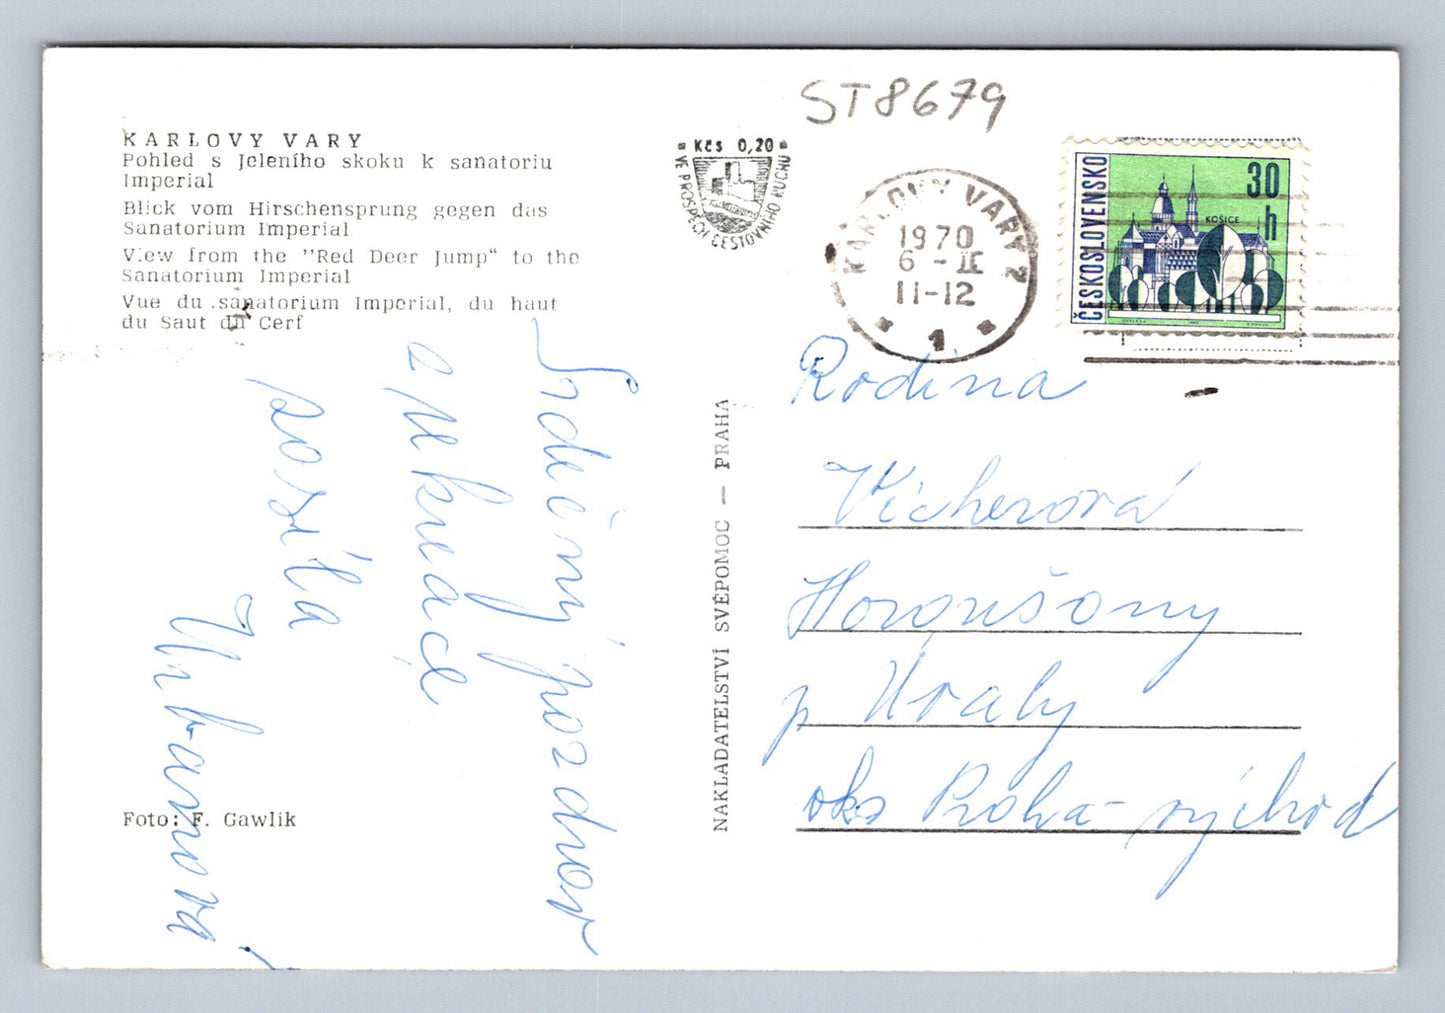 KARLOVY VARY
Pohled s Jeleního skoku k sanatoriu
Imperial
Blick vom Hirschensprung gegen das
Sanatorium Imperial
View from the "Red Deer Jump" to the
Sanatorium Imperial
Vue du sanatorium Imperial, du haut
du Saut du Cerf
Srdečný pozdrav
a
posílá
Urbanová
Foto: F. Gawlik
NAKLADATELSTVÍ SVÉPOMOC — PRAHA
ST8679
Kčs 0,20
VE PROSPĚCH CESTOVNÍHO RUCHU
KARLOVY VARY 2
1970
6-II
11-12
1
ČESKOSLOVENSKO
30
h
KOŠICE
Rodina
Vicherová
Horoušany
p Úvaly
okr Praha-východ